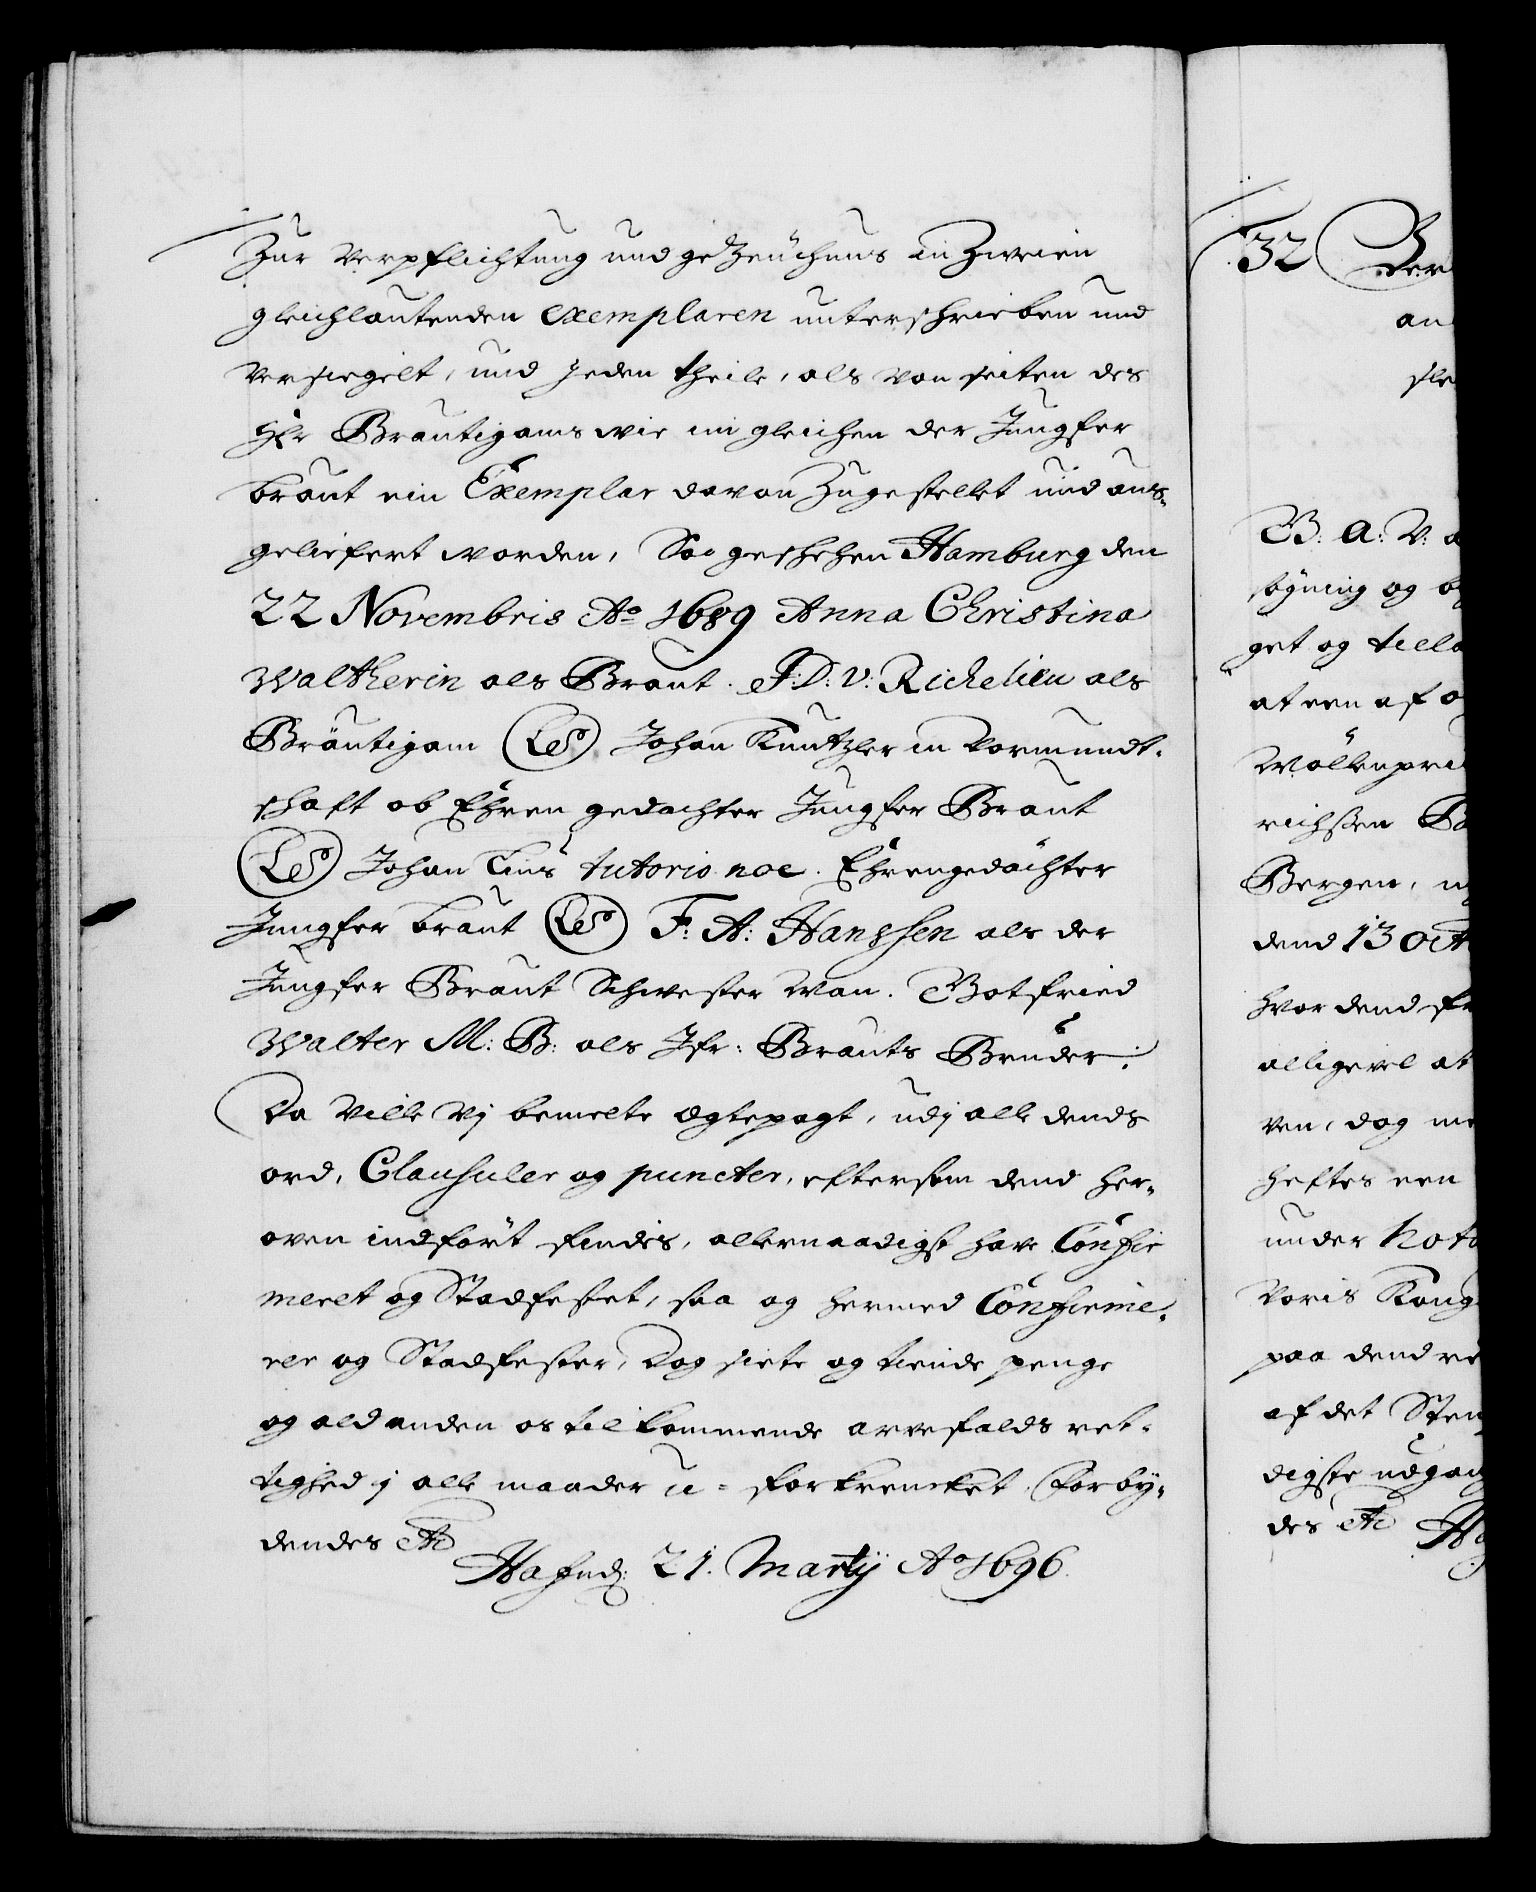 Zur Verpflichtung und gezeuchnus in Zweien
gleichlautenden Exemplaren unterschrieben und
versiegelt, und jeden theile, als von seiten des
Hr Brautigams wie im gleichen der Jungfer
braut ein Exemplar davon Zugestellet und aus-
geliefert worden, So geschehen Hamburg den
22 Novembris Ao 1689 Anna Christina
Waltherin als Braut. J: D: V: Richelieu als
Bräutigam (LS) Johan Kuntzler in Vormundt-
schaft ob Ehren gedachter Jungfer Braut
(LS) Johan tutorio noe. Ehrengedachter
Jungfer braut (LS) F: A: Hanssen als der
Jungfer Braut Schwester Man. Gotfried
Walter M: B: als Jfr: Brauts Bruder;
Da Ville Vj bemelte Ægtepagt, udj alle dends
ord, Clausuler og puncter, eftersom dend her-
oven indfört findis, allernaadigst have Confir
meret og Stadfestet, saa og hermed Confirme-
rer og Stadfester, Dog siete og tiende penge
og ald anden os tilkommende arvefalds ret-
tighed j alle maader u-forkrencket. Forby-
dendes Etc
Hafnd: 21. Martij Ao 1696.
32 Ver
an
B: A: V: a
søgning og be
get og tilla
at een af
richsen B
Bergen,
dend 13 oct
hvor dend
alligevel at
ven, dog me
heftes een
under Not
Voris Kong
paa dend re
af det Stem
digste udgaa
des Etc H